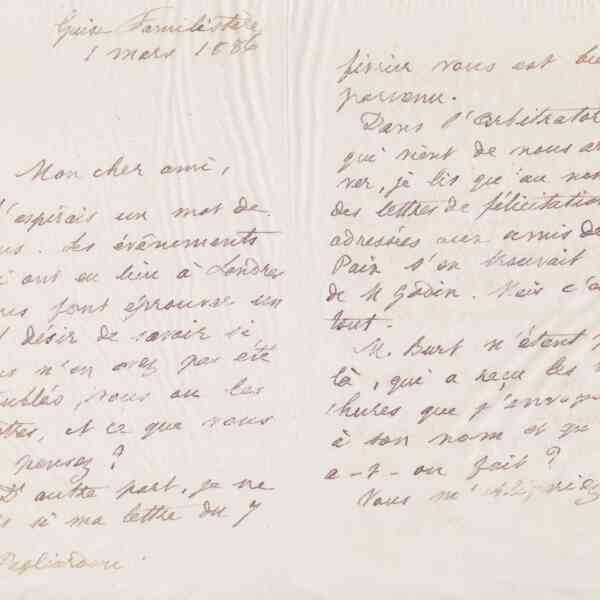 Guise Familistère
1 mars 1886
Mon cher ami,
'espérais un mot de
us. Les événements
i ont eu lieu à Londres
us font éprouver un
désir de savoir si
us n'en avez pas été
oublés, vous ou les
tres, et ce que vous
pensez ?
D'autre part, je ne
is si ma lettre du 7
Pagliardini.
février vous est bie
parvenu.
Dans l'Arbitrator
qui vient de nous ar
ver, je lis qu'au no
des lettres de félicitation
adressées aux amis de
Paix s'en trouvait
de M Godin. Mais c'
tout.
M. Burt n'étant p
là, qui a reçu les
chures que j'envoya
à son nom et qu
a-t-on fait ?
Vous m'obligeriez